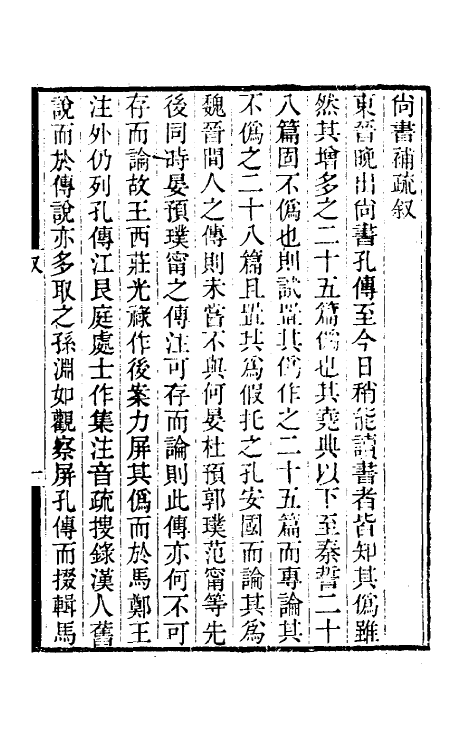 尚書補疏叙
東晉晚出尚書孔傳至今日稍能讀書者皆知其僞雖
然其增多之二十五篇僞也其堯典以下至秦誓二十
八篇固不僞也則試置其僞作之二十五篇而專論其
不僞之二十八篇且置其爲假托之孔安國而論其爲
魏晉間人之傳則未嘗不與何晏杜預郭璞范甯等先
後同時晏預璞甯之傳注可存而論則此傳亦何不可
存而論故王西莊光祿作後案力屏其僞而於馬鄭王
注外仍列孔傳江艮庭處士作集注音疏搜錄漢人舊
說而於傳說亦多取之孫淵如觀察屏孔傳而掇輯馬
叙
一